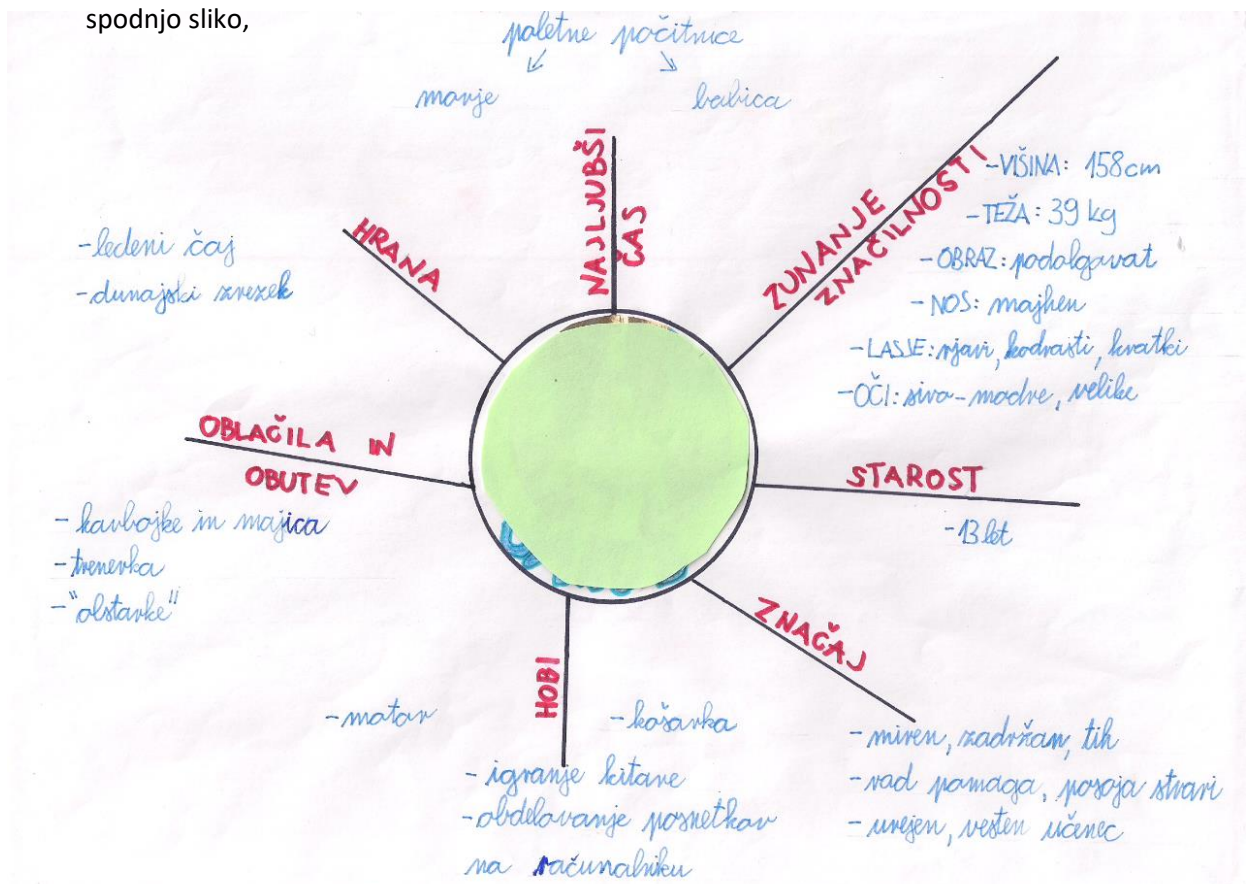 spodnjo sliko,
poletne počitnice
morje
babica
NAJLJUBŠI
ČAS
ZUNANJE
ZNAČILNOSTI
-VIŠINA: 158cm
-TEŽA: 39 kg
-OBRAZ: podolgavat
-NOS: majhen
-LASJE: rjavi, kodrasti, kratki
-OČI: sivo-modre, velike
HRANA
-ledeni čaj
-dunajski zrezek
OBLAČILA IN
OBUTEV
- kavbojke in majica
-trenerka
-"olstarke"
STAROST
-13 let
ZNAČAJ
- miren, zadržan, tih
- rad pomaga, posoja stvari
- urejen, vesten učenec
HOBI
-motor
-košarka
- igranje kitare
- obdelovanje posnetkov
na računalniku